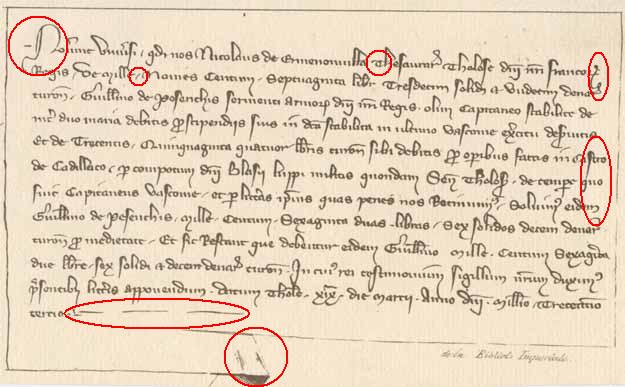 Nouint Vniusi . qd nos Nicolaus de Ermenonuilla Thesaurar Tholose dni nri francor
Regis . de mille . Nouies Centum . Septuaginta libr Tresdecim solidi & Vndecim denar
turon . Guillmo de Posenchis seruienti armorum dni nri Regis . olim Capitaneo stabilite de
duo maria debitis pro stipendiis suis in dca stabilita in ultimo Vasconie exercitu deseruitis
Et de Trecentis . Quinquaginta quatuor libris turon sibi debitis pro operibus factis in castro
de Cadillaco . p compotum dni Blasii luppi militis quondam Sen Tholose . de tempe quo
fuit Capitaneus Vasconie . et p litteras ipius quas penes nos Retinuim . Soluimus eidem
Guillmo de Posenchis . mille . Centum . Sexaginta duas . libras . Sex solidos decem denar
turon pro medietate . Et sic Restant que debentur eidem Guillmo Mille . Centum Sexaginta
due libre . sex solidi & decem denar turon . In cuius rei testimonium sigillum nrum duximus
psentibus litteris apponendum . datum Tholose . xix . die marcii . Anno dni . millio . Trecentesimo
tercio
de la Biblioth Impériale.